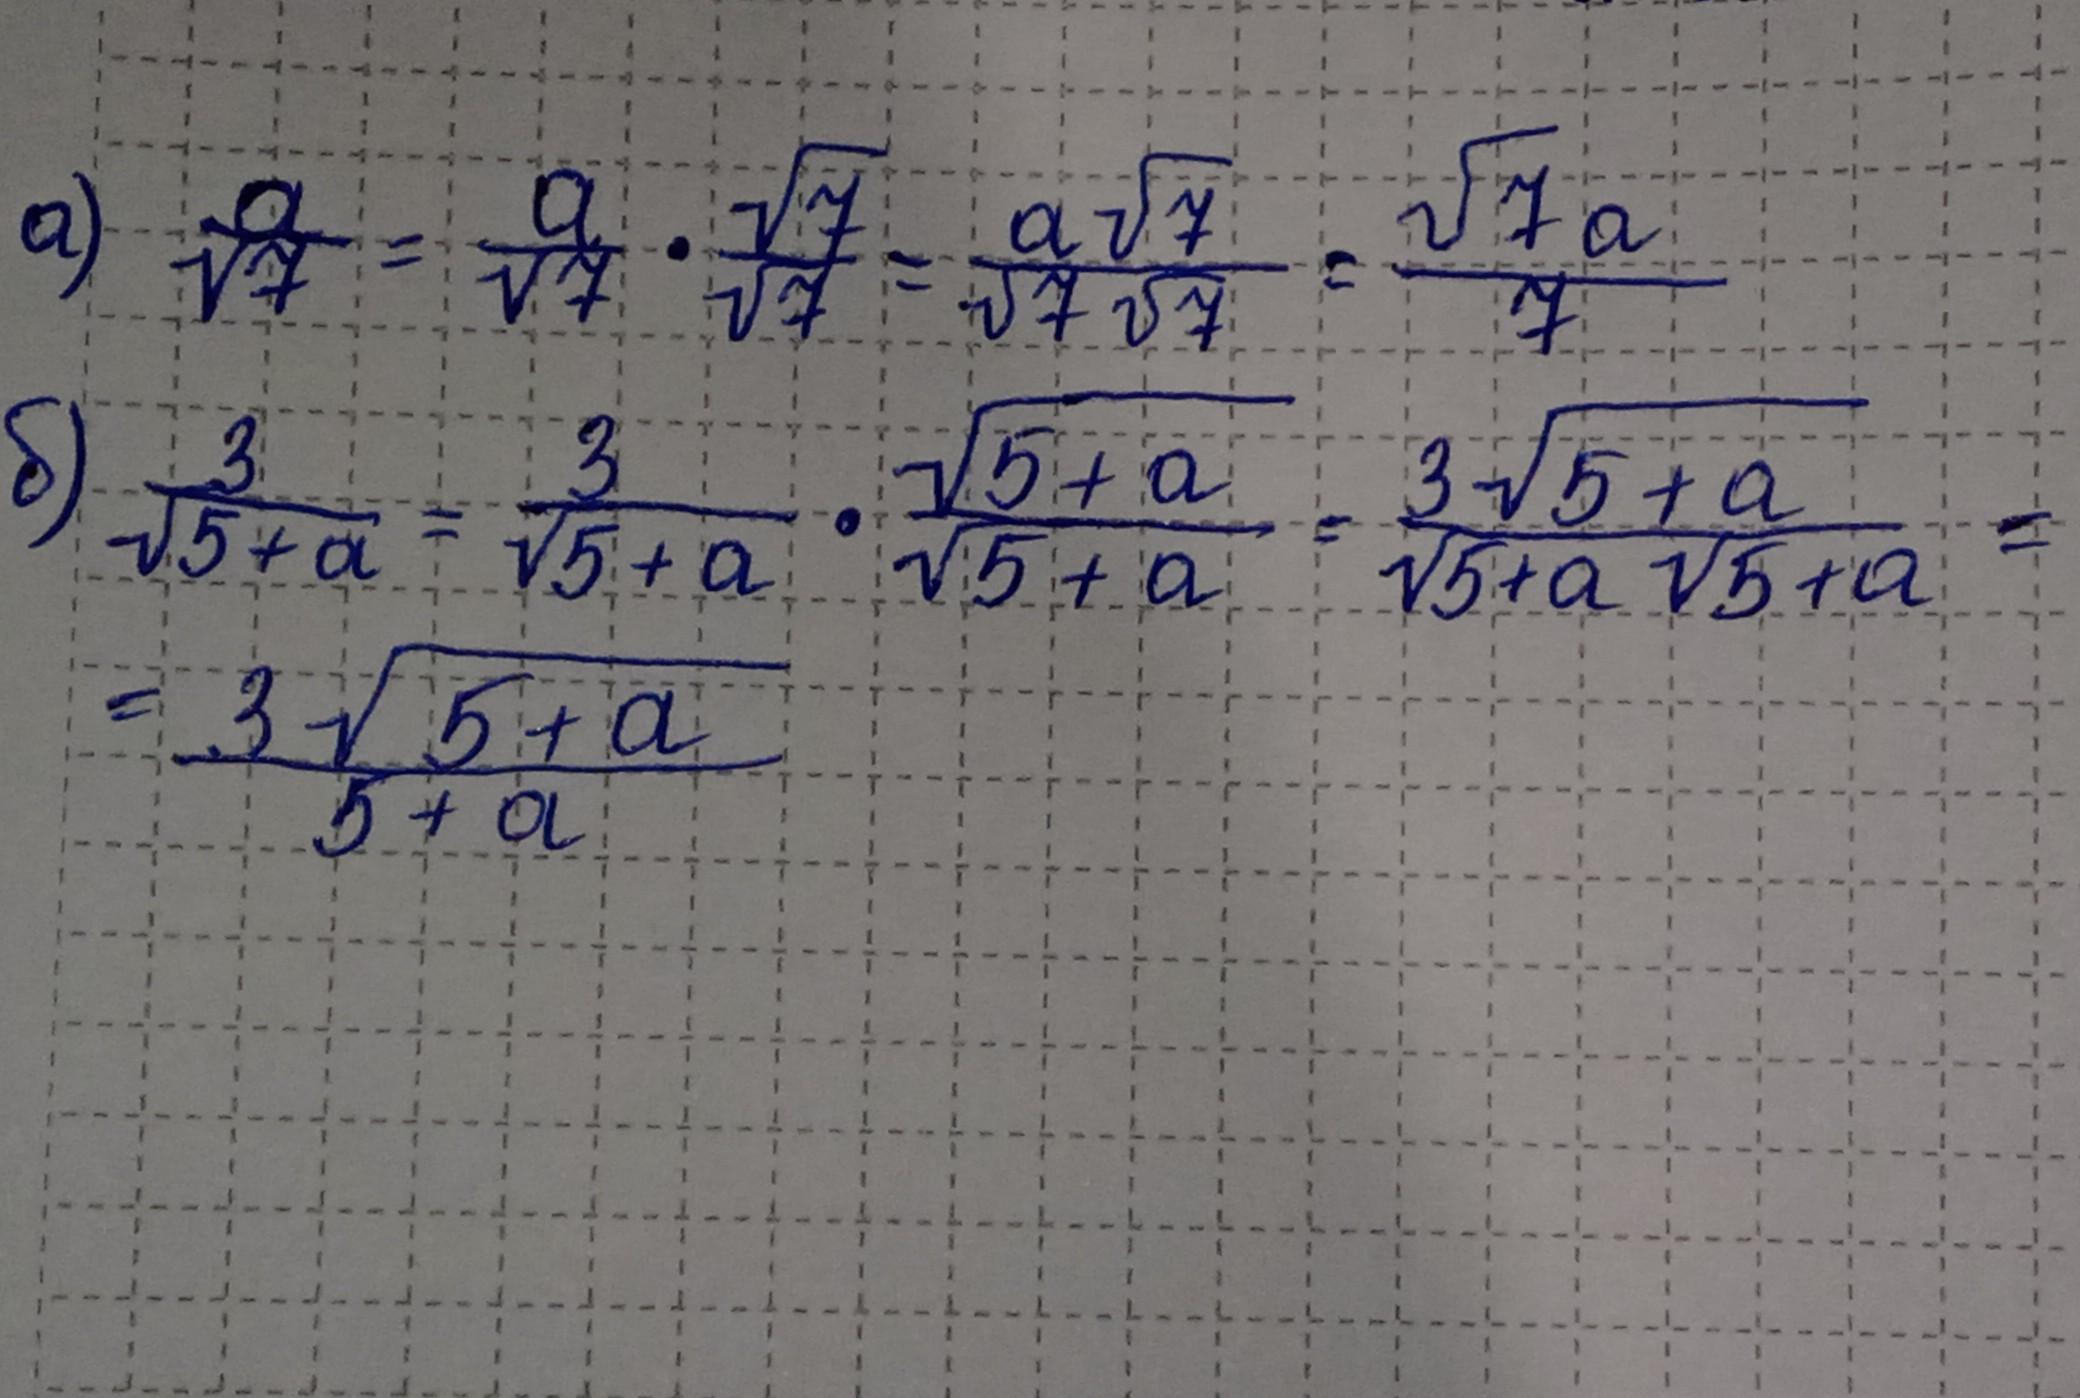 а) a/√7 = a/√7 · √7/√7 = a√7/√7√7 = √7a/7
б) 3/√5+a = 3/√5+a · √5+a/√5+a = 3√5+a/√5+a√5+a =
= 3√5+a/5+a